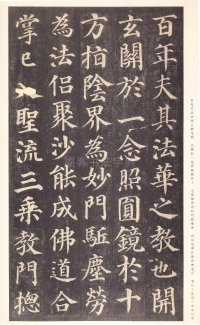 百年夫其法華之教也開
玄關於一念照圓鏡於十
方指陰界為妙門駈塵勞
為法侶聚沙能成佛道合
掌已聖流三乘教門揔